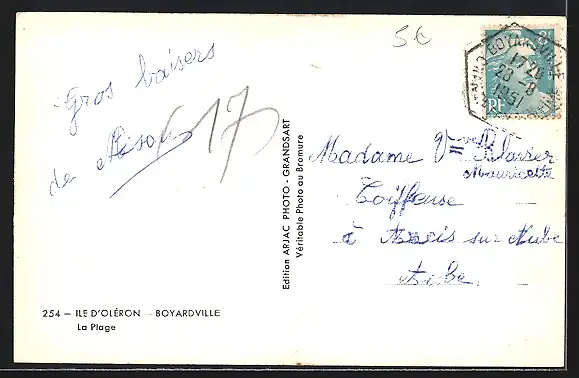 5€
BOYARDVILLE
17 20
20 - 8
1951
RF
Gros baisers
de
17
Madame Vve
Mauricette
Coiffeuse
à Arcis sur Aube
Aube.
Edition ARJAC PHOTO - GRANDSART
Véritable Photo au Bromure
254 — ILE D'OLÉRON — BOYARDVILLE
La Plage